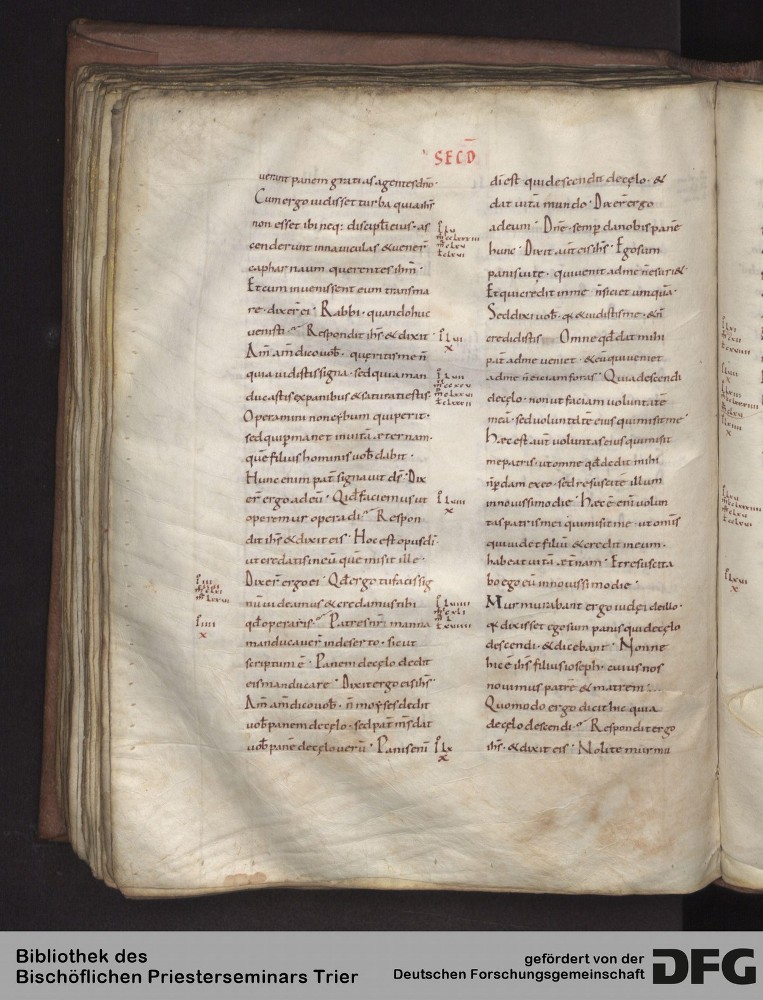 SECD̄
uerunt panem gratias agentes dn̄o·
Cum ergo uidisset turba quia ih̄s
non esset ibi neq: discipłi eius· as
cenderunt in nauiculas & uener̄
capharnaum querentes ih̄m·
Et cum inuenissent eum trans ma
re· dixer̄ ei· Rabbi· quando huc
uenisti· Respondit ih̄s & dixit·
Am̄ am̄ dico uob̄· quęritis me n̄
quia uidistis signa· sed quia man
ducastis ex panibus & saturati estis·
Operamini non cybum qui perit·
sed qui pmanet in uitā ęternam·
quē filius hominis uob̄ dabit·
Hunc enim pat̄ signauit ds̄· Dix
er̄ ergo ad eū· Qid faciemus ut
operemur opera di· Respon
dit ih̄s & dixit eis· Hoc est opus di·
ut credatis in eū quē misit ille·
Dixer̄ ergo ei· Qd̄ ergo tu facis sig
nū ut uideamus & credamus tibi
qd̄ operaris· Patres nr̄i manna
manducauer̄ in deserto· sicut
scriptum ē· Panem de cęlo dedit
eis manducare· Dixit ergo eis ih̄s·
Am̄ am̄ dico uob̄· n̄ moyses dedit
uob̄ panem de cęlo· sed pat̄ ms̄ dat
uob̄ panē de cęlo uerū· Panis enī
di est· qui descendit de cęlo· &
dat uitā mundo· Dixer̄ ergo
ad eum· Dn̄e· semp da nobis panē
hunc· Dixit aut̄ eis ih̄s· Ego sum
panis uitę· qui uenit ad me n̄ esuri&·
Et qui credit in me n̄ siciet umquā·
Sed dixi uob̄· qa & uidistis me· & n̄
credidistis Omne qd̄ dat mihi
pat̄ ad me ueniet· & eū qui ueniet
ad me n̄ eiciam foras· Quia descendi
de cęlo· non ut faciam uoluntatē
meā· sed uoluntatē eius qui misit me·
Hęc est aut̄ uoluntas eius qui misit
me patris· ut omne qd̄ dedit mihi
n̄ pdam ex eo· sed resuscitē illum
in nouissimo die· Hęc ē enī uolun
tas patris mei qui misit me· ut omīs
qui uidet filiū & credit in eum·
habeat uitā ęt̄nam· Et resuscita
bo ego eū in nouissimo die·
Murmurabant ergo iudęi de illo·
qa dixisset ego sum panis qui de cęlo
descendi· & dicebant· Nonne
hic ē ih̄s filius ioseph· cuius nos
nouimus patrē & matrem·
Quomodo ergo dicit hic quia
de cęlo descendi· Respondit ergo
ih̄s· & dixit eis· Nolite murmu
Bibliothek des
Bischöflichen Priesterseminars Trier
gefördert von der
Deutschen Forschungsgemeinschaft
DFG